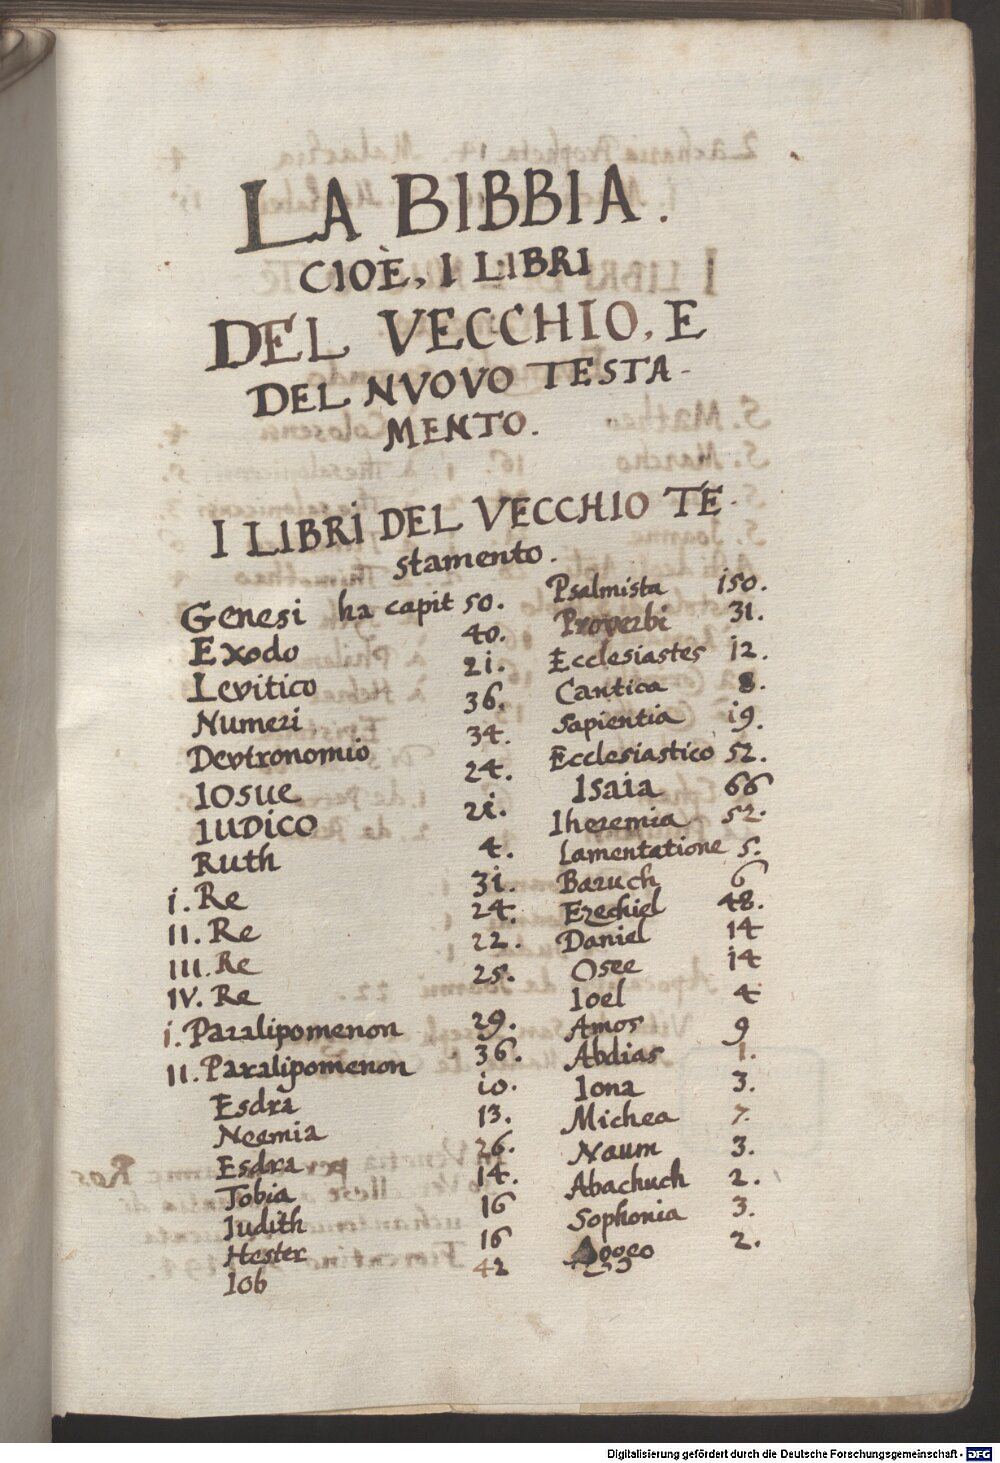 LA BIBBIA.
CIOÈ, I LIBRI
DEL VECCHIO, E
DEL NVOVO TESTA-
MENTO.
I LIBRI DEL VECCHIO TE-
stamento.
Genesi ha capit 50.
Exodo 40.
Levitico 2i.
Numeri 36.
Devtronomio 34.
IOSUE 24.
IUDICO 2i.
Ruth 4.
i. Re 3i.
II. Re 24.
III. Re 22.
IV. Re 25.
i. Paralipomenon 29.
II. Paralipomenon 36.
Esdra io.
Neemia 13.
Esdra 26.
Tobia 14.
Judith 16
Hester 16
Iob 42
Psalmista i50.
Proverbi 31.
Ecclesiastes i2.
Cantica 8.
Sapientia i9.
Ecclesiastico 52.
Isaia 66
Iheremia 52.
Lamentatione 5.
Baruch 6
Ezechiel 48.
Daniel 14
Osee 14
Ioel 4
Amos 9
Abdias 1.
Iona 3.
Michea 7.
Naum 3.
Abachuch 2.
Sophonia 3.
Aggeo 2.
Digitalisierung gefördert durch die Deutsche Forschungsgemeinschaft - DFG